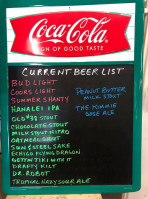 Coca-Cola
SIGN OF GOOD TASTE
CURRENT BEER LIST
BUD LIGHT
COORS LIGHT
SUMMER SHANTY
HANALEI IPA
CHOCOLATE STOUT
MILK STOUT NITRO
OATMEAL STOUT
SUNSETS EL SAKE
ECHIGO FLYING DRAGON
GETTIN TIKI WIT IT
DRAFTY KILT
DR. ROBOT
TROPICAL HAZY SOUR ALE
PEANUT BUTTER
MILK STOUT
THE KIMMIE
GOSE ALE